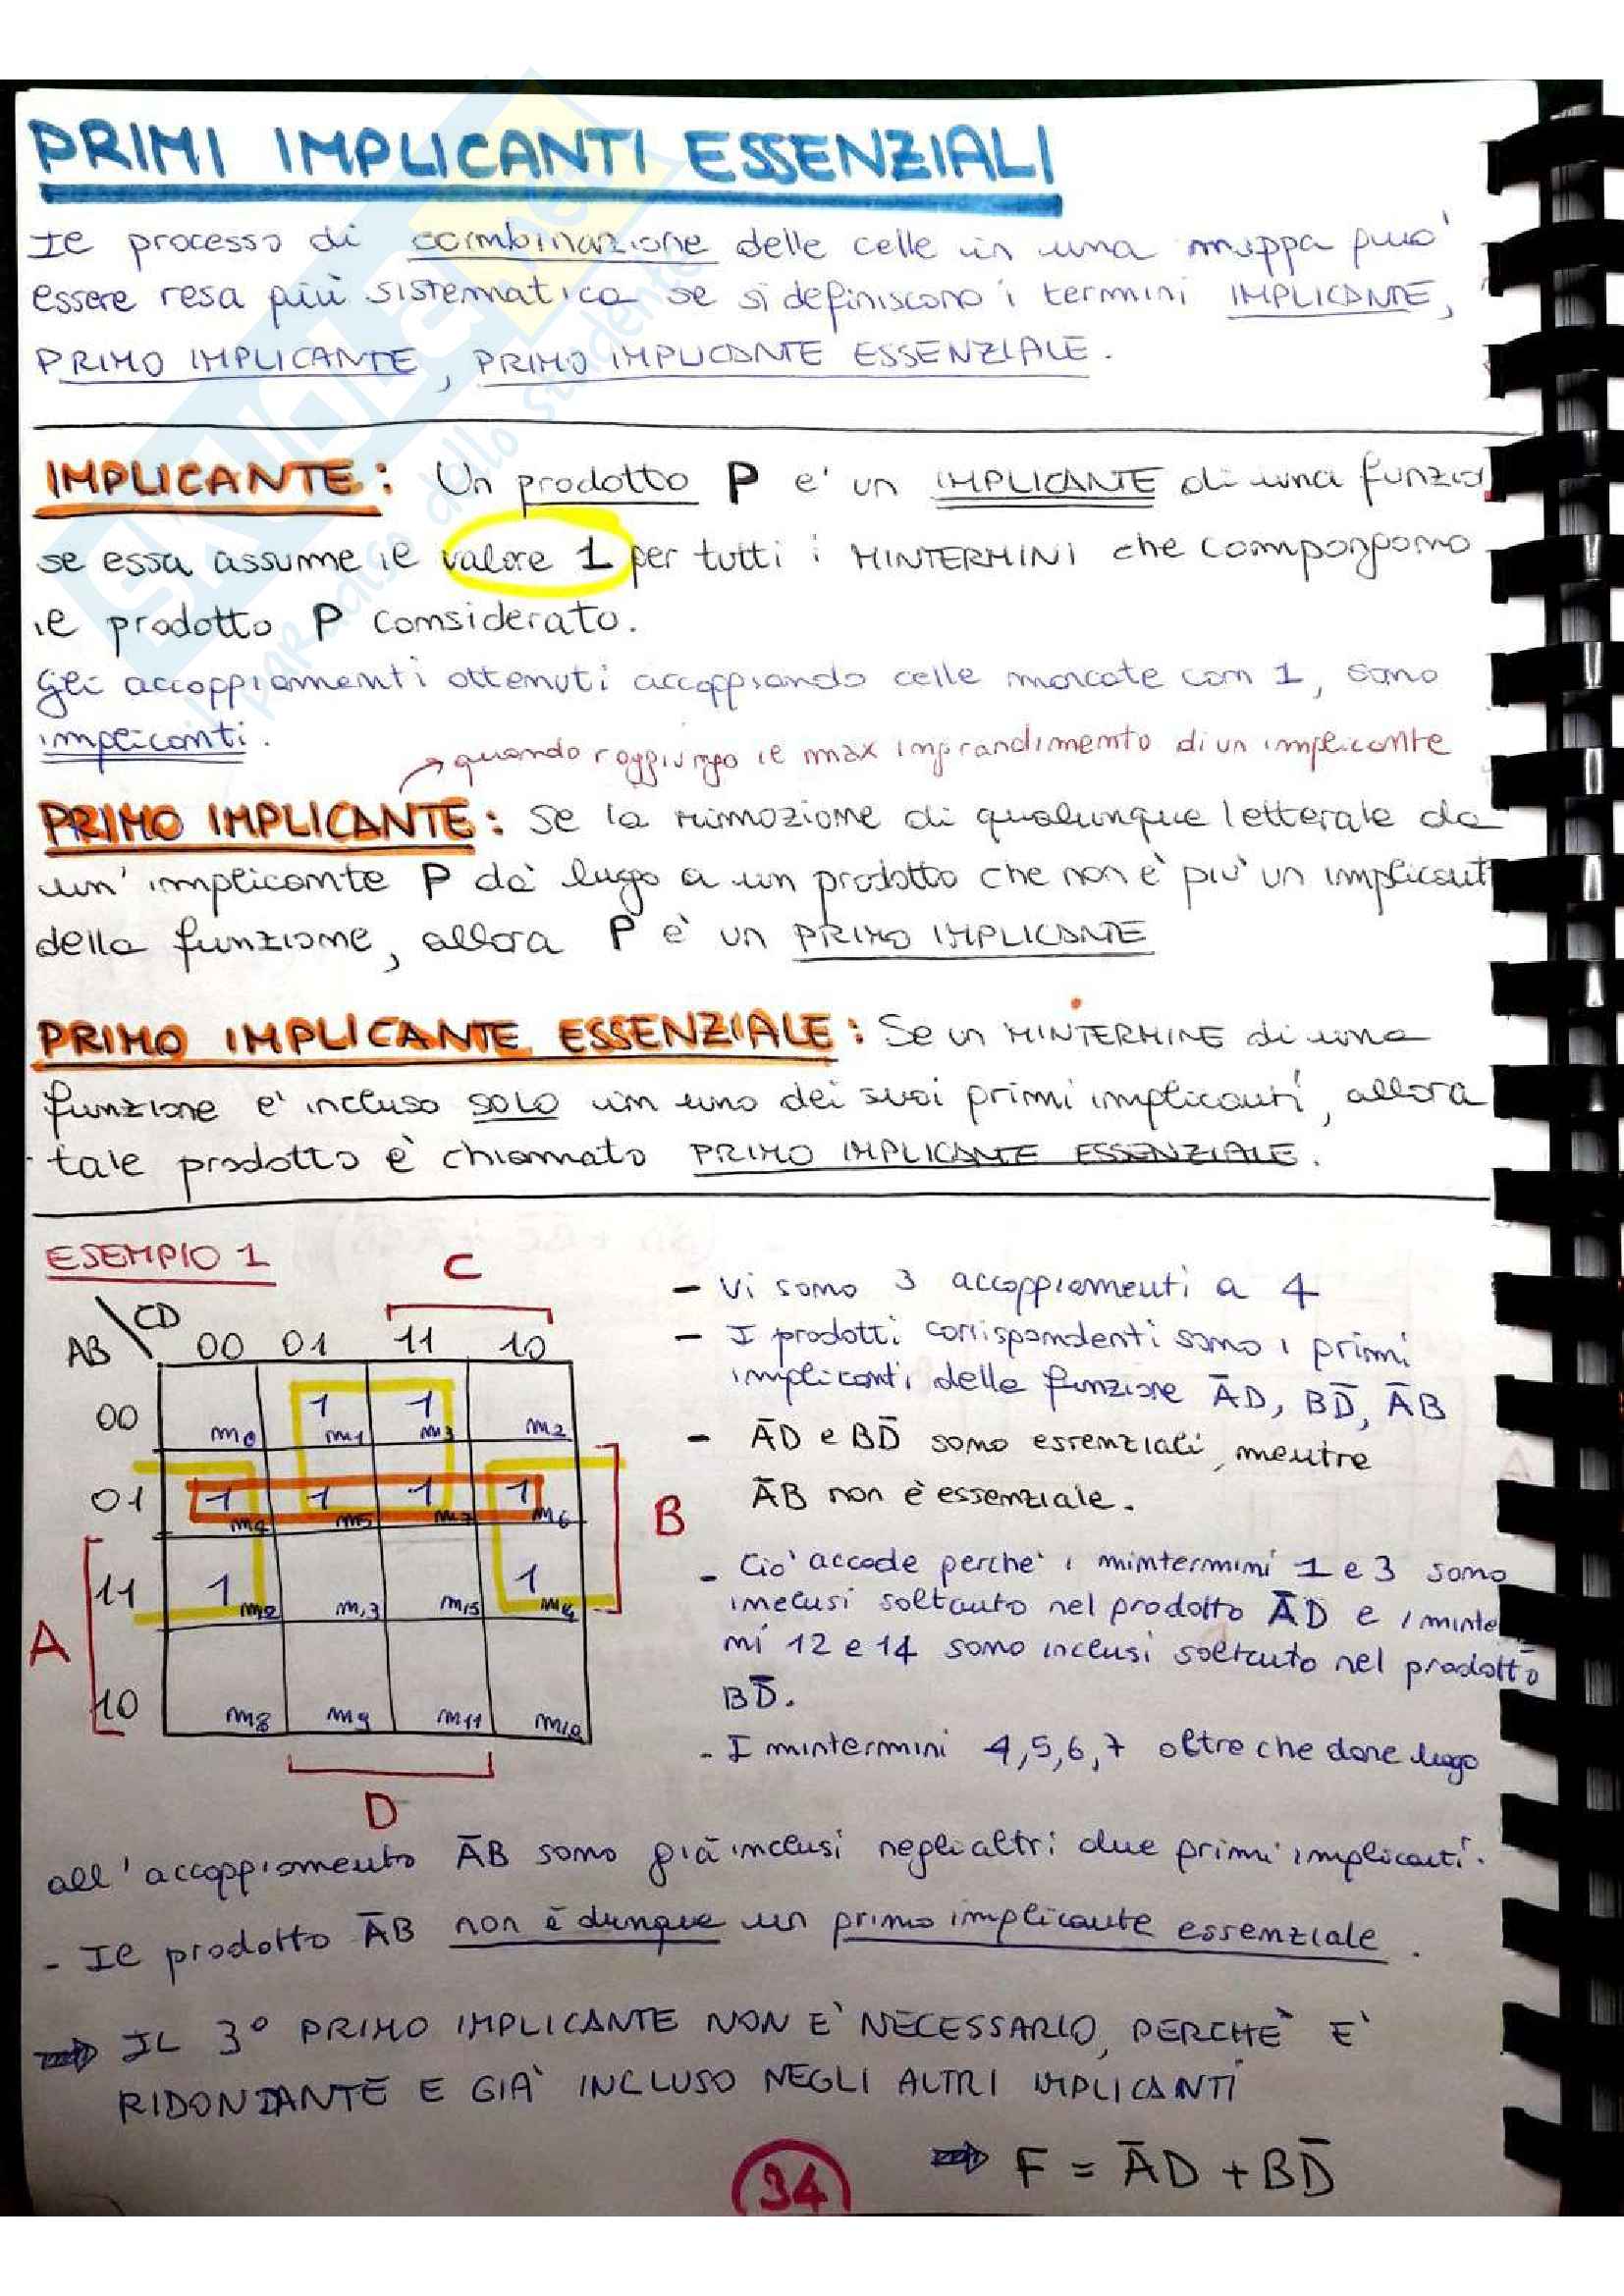 PRIMI IMPLICANTI ESSENZIALI
Il processo di combinazione delle celle in una mappa può
essere resa più sistematica se si definiscono i termini IMPLICANTE,
PRIMO IMPLICANTE, PRIMO IMPLICANTE ESSENZIALE.
IMPLICANTE: Un prodotto P e' un IMPLICANTE di una funzio
se essa assume il valore 1 per tutti i MINTERMINI che compongono
il prodotto P considerato.
gli accoppiamenti ottenuti accoppiando celle marcate con 1, sono
implicanti.
quando raggiungo il max ingrandimento di un implicante
PRIMO IMPLICANTE: Se la rimozione di qualunque letterale da
un' implicante P dà luogo a un prodotto che non è più un implicant
della funzione, allora P è un PRIMO IMPLICANTE
PRIMO IMPLICANTE ESSENZIALE: Se un MINTERMINE di una
funzione e' incluso SOLO in uno dei suoi primi implicanti, allora
tale prodotto è chiamato PRIMO IMPLICANTE ESSENZIALE.
ESEMPIO 1
C
AB \ CD 00 01 11 10
00 m0 1 m1 1 m3 m2
01 1 m4 1 m5 1 m7 1 m6
B
11 1 m12 m13 m15 1 m14
A
10 m8 m9 m11 m10
D
- Vi sono 3 accoppiamenti a 4
- I prodotti corrispondenti sono i primi
implicanti della funzione A̅D, BD̅, A̅B
- A̅D e BD̅ sono essenziali, mentre
A̅B non è essenziale.
- Cio' accade perche' i mintermini 1 e 3 sono
inclusi soltanto nel prodotto A̅D e i minte
mi 12 e 14 sono inclusi soltanto nel prodotto
BD̅.
- I mintermini 4,5,6,7 oltre che dare luogo
all'accoppiamento A̅B sono già inclusi negli altri due primi implicanti.
- Il prodotto A̅B non è dunque un primo implicante essenziale.
⇒ IL 3° PRIMO IMPLICANTE NON E' NECESSARIO, PERCHÈ E'
RIDONDANTE E GIA' INCLUSO NEGLI ALTRI IMPLICANTI
⇒ F = A̅D + BD̅
34
Skuola.net
il paradiso dello studente